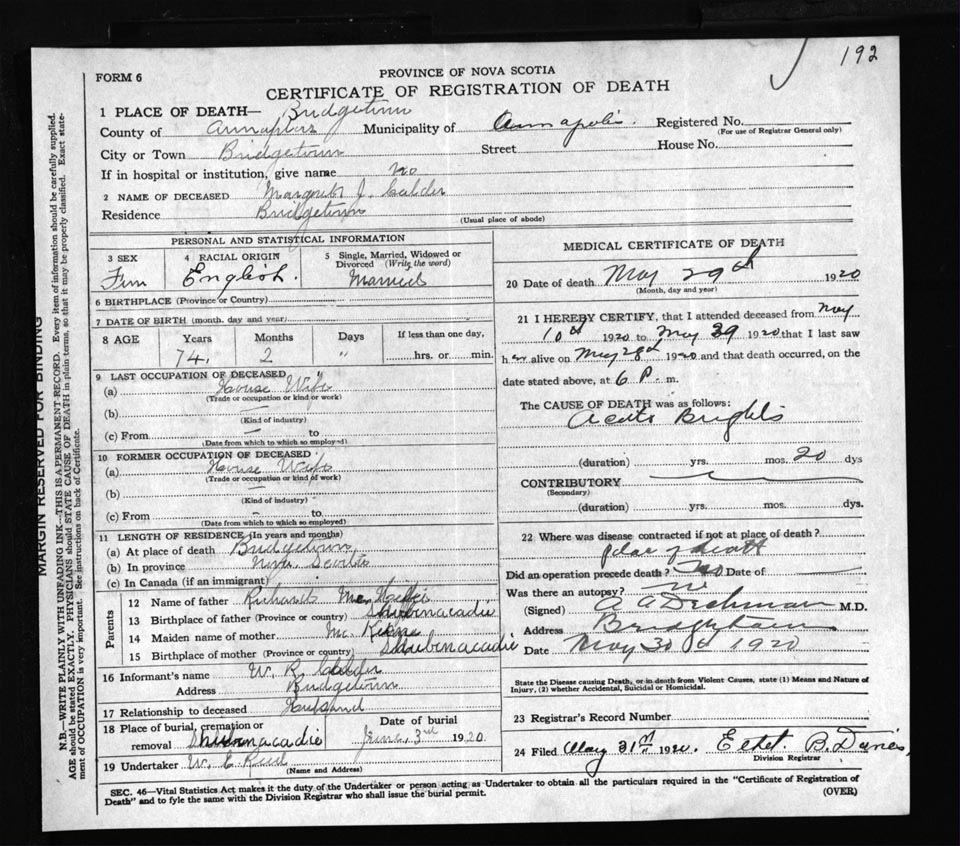 192
FORM 6
PROVINCE OF NOVA SCOTIA
CERTIFICATE OF REGISTRATION OF DEATH
1 PLACE OF DEATH— Bridgetown
County of Annapolis Municipality of Annapolis. Registered No.
(For use of Registrar General only)
City or Town Bridgetown Street House No.
If in hospital or institution, give name No
2 NAME OF DECEASED Margaret J. Calder
Residence Bridgetown
(Usual place of abode)
PERSONAL AND STATISTICAL INFORMATION
3 SEX 4 RACIAL ORIGIN 5 Single, Married, Widowed or
Divorced (Write the word)
Fem English. Married
6 BIRTHPLACE (Province or Country)
7 DATE OF BIRTH (month, day and year)
8 AGE Years Months Days If less than one day,
74. 2 " hrs. or min.
9 LAST OCCUPATION OF DECEASED
(a) House Wife
(Trade or occupation or kind or work)
(b)
(Kind of industry)
(c) From — to
(Date from which to which so employed)
10 FORMER OCCUPATION OF DECEASED
(a) House Wife
(Trade or occupation or kind of work)
(b)
(Kind of industry)
(c) From — to
(Date from which to which so employed)
11 LENGTH OF RESIDENCE (In years and months)
(a) At place of death Bridgetown
(b) In province Nova Scotia
(c) In Canada (if an immigrant)
Parents
12 Name of father Richard Mc
13 Birthplace of father (Province or country) Shubenacadie
14 Maiden name of mother Mc
15 Birthplace of mother (Province or country) Shubenacadie
16 Informant's name W. R. Calder
Address Bridgetown
17 Relationship to deceased Husband
18 Place of burial, cremation or Date of burial
removal Shubenacadie June 3rd 1920.
19 Undertaker W. E. Reed
(Name and Address)
MEDICAL CERTIFICATE OF DEATH
20 Date of death May 29th 1920
(Month, day and year)
21 I HEREBY CERTIFY, that I attended deceased from May
10th 1920 to May 29 1920 that I last saw
her alive on May 28th 1920 and that death occurred, on the
date stated above, at 6 P. m.
The CAUSE OF DEATH was as follows:
Acute Brights
(duration) yrs. mos. 20 dys
CONTRIBUTORY
(Secondary)
(duration) yrs. mos. dys.
22 Where was disease contracted if not at place of death?
place of death
Did an operation precede death? No Date of —
Was there an autopsy? no
(Signed) A A Dechman M.D.
Address Bridgetown
Date May 30th 1920
State the Disease causing Death, or in death from Violent Causes, state (1) Means and Nature of
Injury, (2) whether Accidental, Suicidal or Homicidal.
23 Registrar's Record Number
24 Filed May 31st 1920. B.
Division Registrar
SEC. 46—Vital Statistics Act makes it the duty of the Undertaker or person acting as Undertaker to obtain all the particulars required in the "Certificate of Registration of
Death" and to fyle the same with the Division Registrar who shall issue the burial permit.
(OVER)
MARGIN RESERVED FOR BINDING
N.B.—WRITE PLAINLY WITH UNFADING INK—THIS IS A PERMANENT RECORD. Every item of information should be carefully supplied.
AGE should be stated EXACTLY. PHYSICIANS should STATE CAUSE OF DEATH in plain terms, so that it may be properly classified. Exact state-
ment of OCCUPATION is very important. See instructions on back of Certificate.